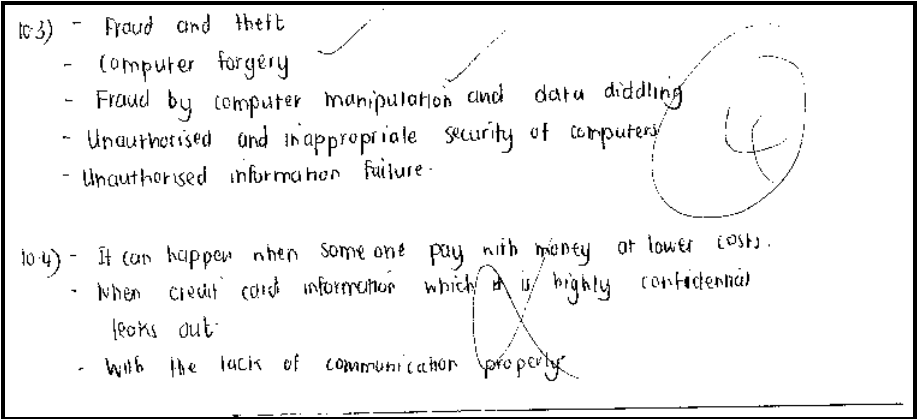 10.3) - Fraud and theft
- Computer forgery
- Fraud by computer manipulation and data diddling
- Unauthorised and inappropriate security of computers
- Unauthorised information failure.
4
10.4) - It can happen when some one pay with money at lower costs.
- When credit card information which it is highly confidennial
leaks out.
- With the lack of communication properly